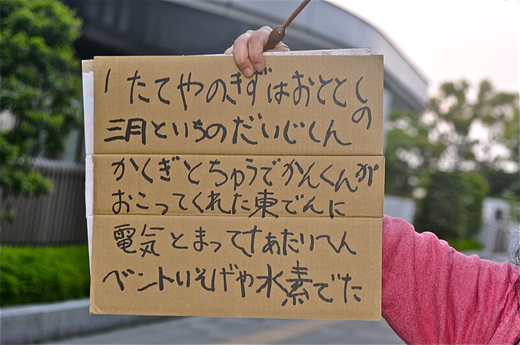 たてやのきずはおととしの
三月といちのだいじしん
かくぎとちゅうでかんくんが
おこってくれた東でんに
電気とまってさぁたいへん
ベントいそげや水素でた